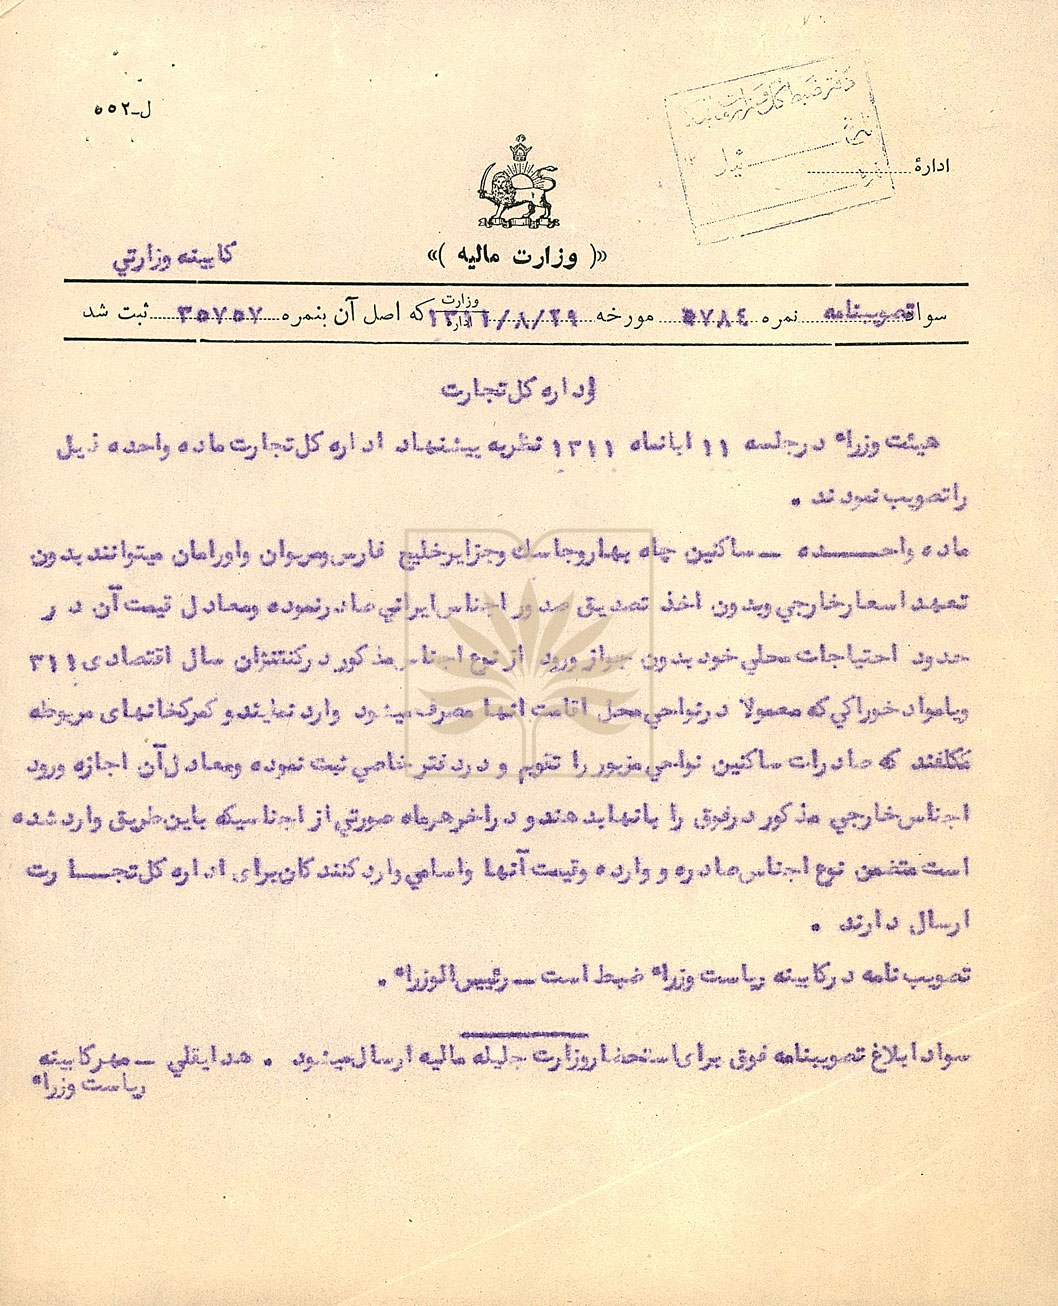 ل-۵۵۲
دفتر ضبط کل وزارت مالیه
ادارهٔ
«( وزارت مالیه )»
کابینه وزارتي
سواد تصویبنامه نمره ۵۷۸٤ مورخه ۱۳۱۱/۸/۲۹ وزارت اداره که اصل آن بنمره ۳۵۷۵۷ ثبت شد
اداره کل تجارت
هیئت وزراء در جلسه ۱۱ ابانماه ۱۳۱۱ نظربه پیشنهاد اداره کل تجارت ماده واحده ذیل
را تصویب نمودند .
ماده واحــــده ـ ساکنین چاه بهار وجاسك وجزایر خلیج فارس ومریوان واورامان میتوانند بدون
تعهد اسعار خارجي وبدون اخذ تصدیق صدور اجناس ایراني صادر نموده ومعادل قیمت آن در
حدود احتیاجات محلي خود بدون جواز ورود از نوع اجناس مذکور در کنتنژان سال اقتصادی ۳۱۱
ویا مواد خوراکي که معمولا در نواحي محل اقامت انها مصرف میشود وارد نمایند و گمرکخانهای مربوطه
مکلفند که صادرات ساکنین نواحي مزبور را تقویم و در دفتر خاصي ثبت نموده ومعادل آن اجازه ورود
اجناس خارجي مذکور در فوق را بانها بدهند و در اخر هر ماه صورتي از اجناسیکه باین طریق وارد شده
است متضمن نوع اجناس صادره و وارده وقیمت آنها واسامي وارد کنندکان برای اداره کل تجــارت
ارسال دارند .
تصویب نامه در کابینه ریاست وزراء ضبط است ـ رئیس الوزراء .
سواد ابلاغ تصویبنامه فوق برای استحضار وزارت جلیله مالیه ارسال میشود . هدایقلي ـ مهر کابینه
ریاست وزراء